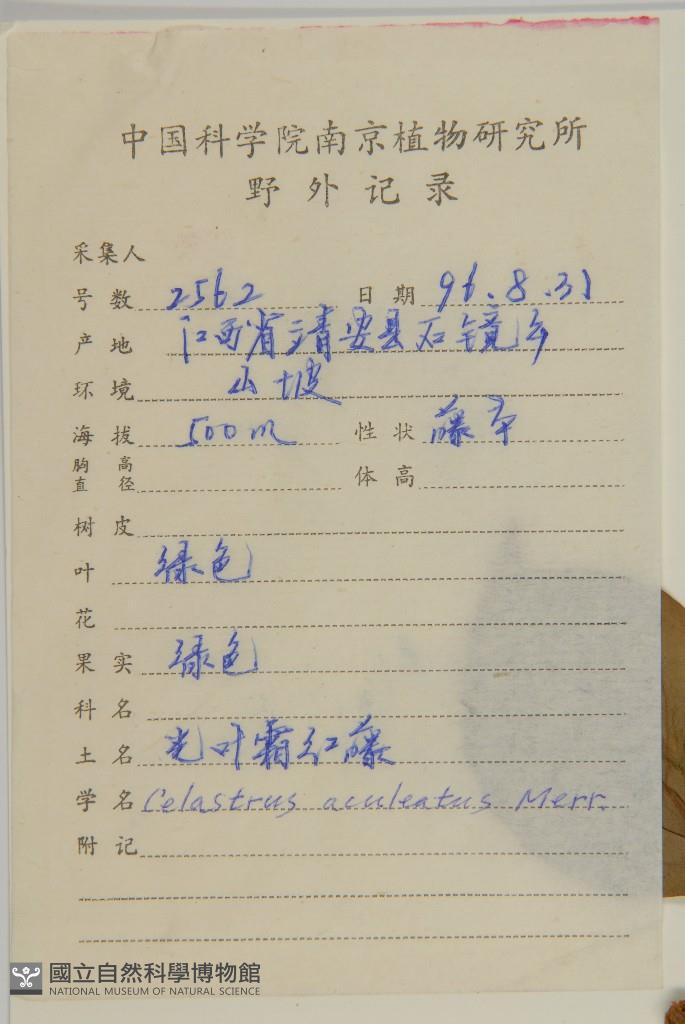 中国科学院南京植物研究所
野外记录
采集人
号数 2562 日期 96.8.31
产地 江西省靖安县石镜乡
环境 山坡
海拔 500m 性状 藤本
胸高直径 体高
树皮
叶 绿色
花
果实 绿色
科名
土名 光叶霜红藤
学名 Celastrus aculeatus Merr.
附记
國立自然科學博物館
NATIONAL MUSEUM OF NATURAL SCIENCE